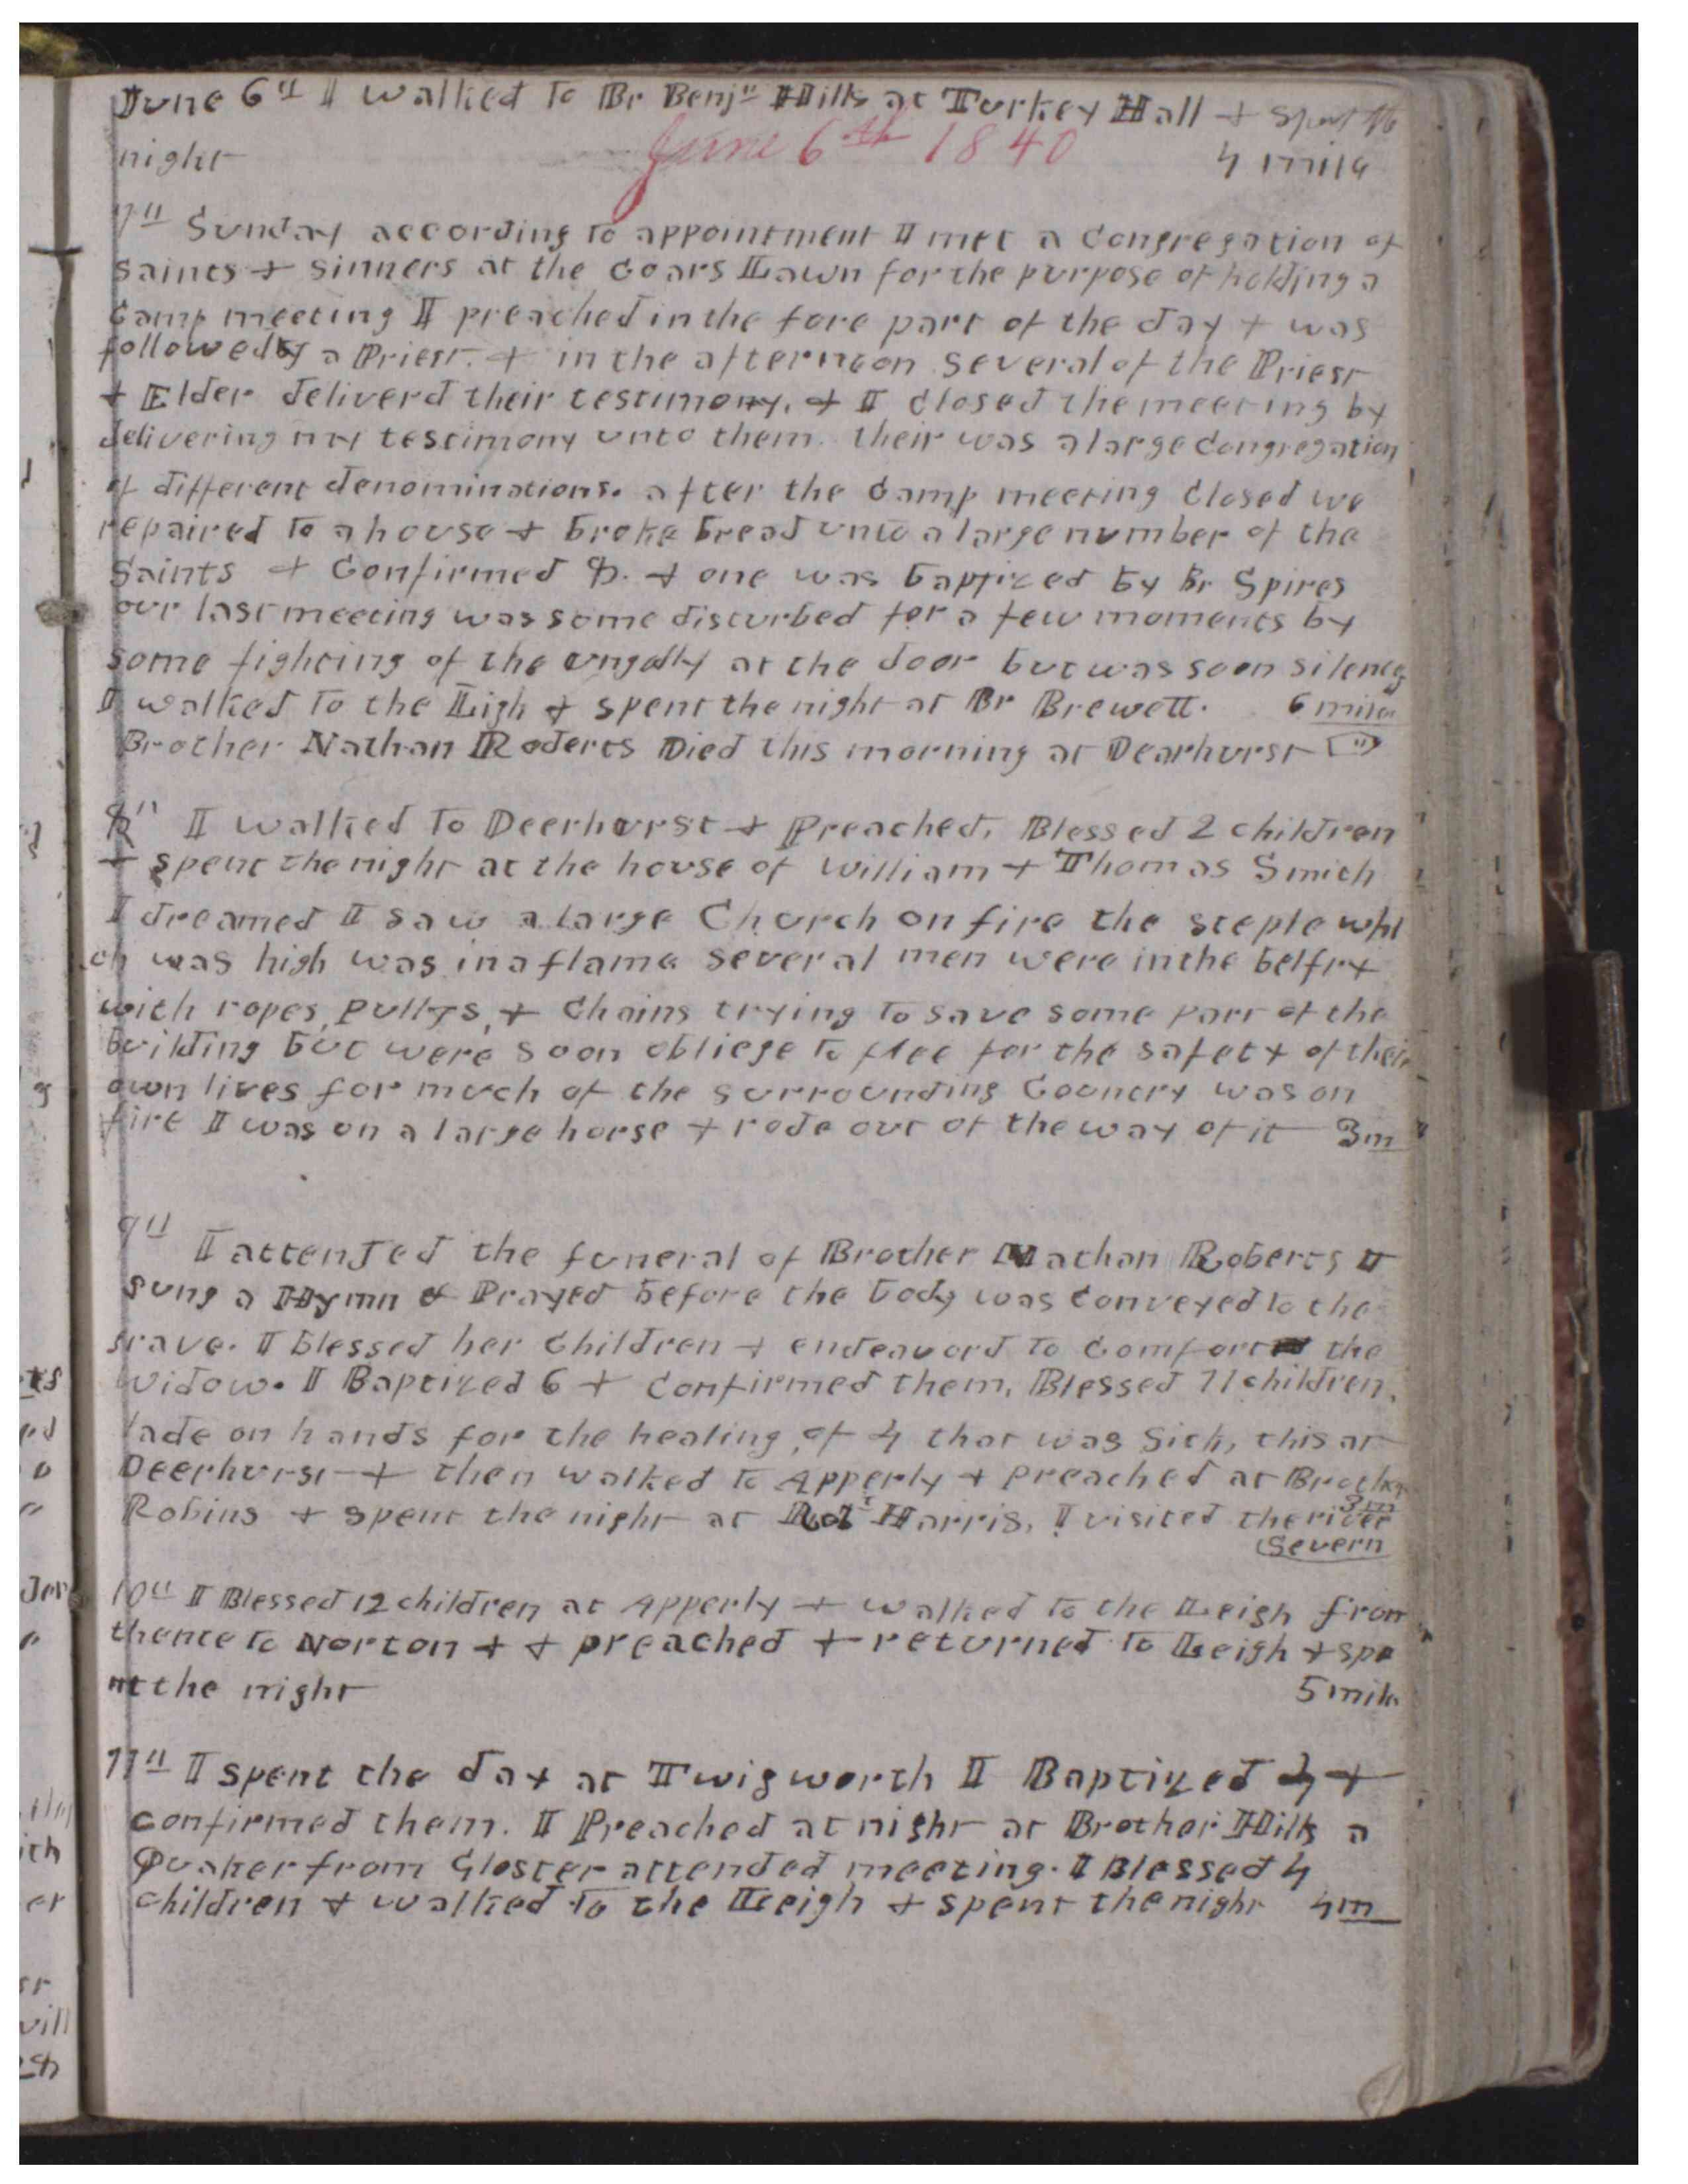 June 6th I walked to Br Benjn Hills at Turkey Hall + spent the
night 4 mile
June 6th 1840
7th Sunday according to appointment I met a Congregation of
Saints + sinners at the Coars Lawn for the purpose of holding a
Camp meeting I preached in the fore part of the day + was
followed by a Priest. + in the afternoon several of the Priest
+ Elder deliverd their testimony. + I closed the meeting by
delivering my testimony unto them. their was a large Congregation
of different denominations. after the Camp meeting Closed we
repaired to a house + broke bread unto a large number of the
Saints + Confirmed 8. + one was baptized by Br Spires
our last meeting was some disturbed for a few moments by
some fighting of the ungodly at the door but was soon silenced
I walked to the Ligh + spent the night at Br Brewett. 6 miles
Brother Nathan Roberts Died this morning at Dearhurst
8th I walked to Deerhurst + Preached. Blessed 2 children
+ spent the night at the house of William + Thomas Smith
I dreamed I saw a large Church on fire the steple whi
ch was high was in a flame several men were in the belfry
with ropes, pullys, + Chains trying to save some part of the
building but were soon obliege to flee for the safety of their
own lives for much of the surrounding Country was on
fire I was on a large horse + rode out of the way of it 3m
9th I attended the funeral of Brother Nathan Roberts I
sung a Hymn & Prayed before the body was conveyed to the
grave. I blessed her Children + endeavord to Comfort the
widow. I Baptized 6 + Confirmed them, Blessed 11 children,
lade on hands for the healing of 4 that was Sick, this at
Deerhurst + then walked to Apperly + preached at Brother
Robins + spent the night at Robt Harris, I visited the river 3m
Severn
10th I Blessed 12 children at Apperly + walked to the Leigh from
thence to Norton + + preached + returned to Leigh + spe
nt the night 5 mile
11th I spent the day at Twigworth I Baptized 4 +
confirmed them. I Preached at night at Brother Hills a
Quaker from Gloster attended meeting. I Blessed 4
children + walked to the Leigh + spent the night 4m